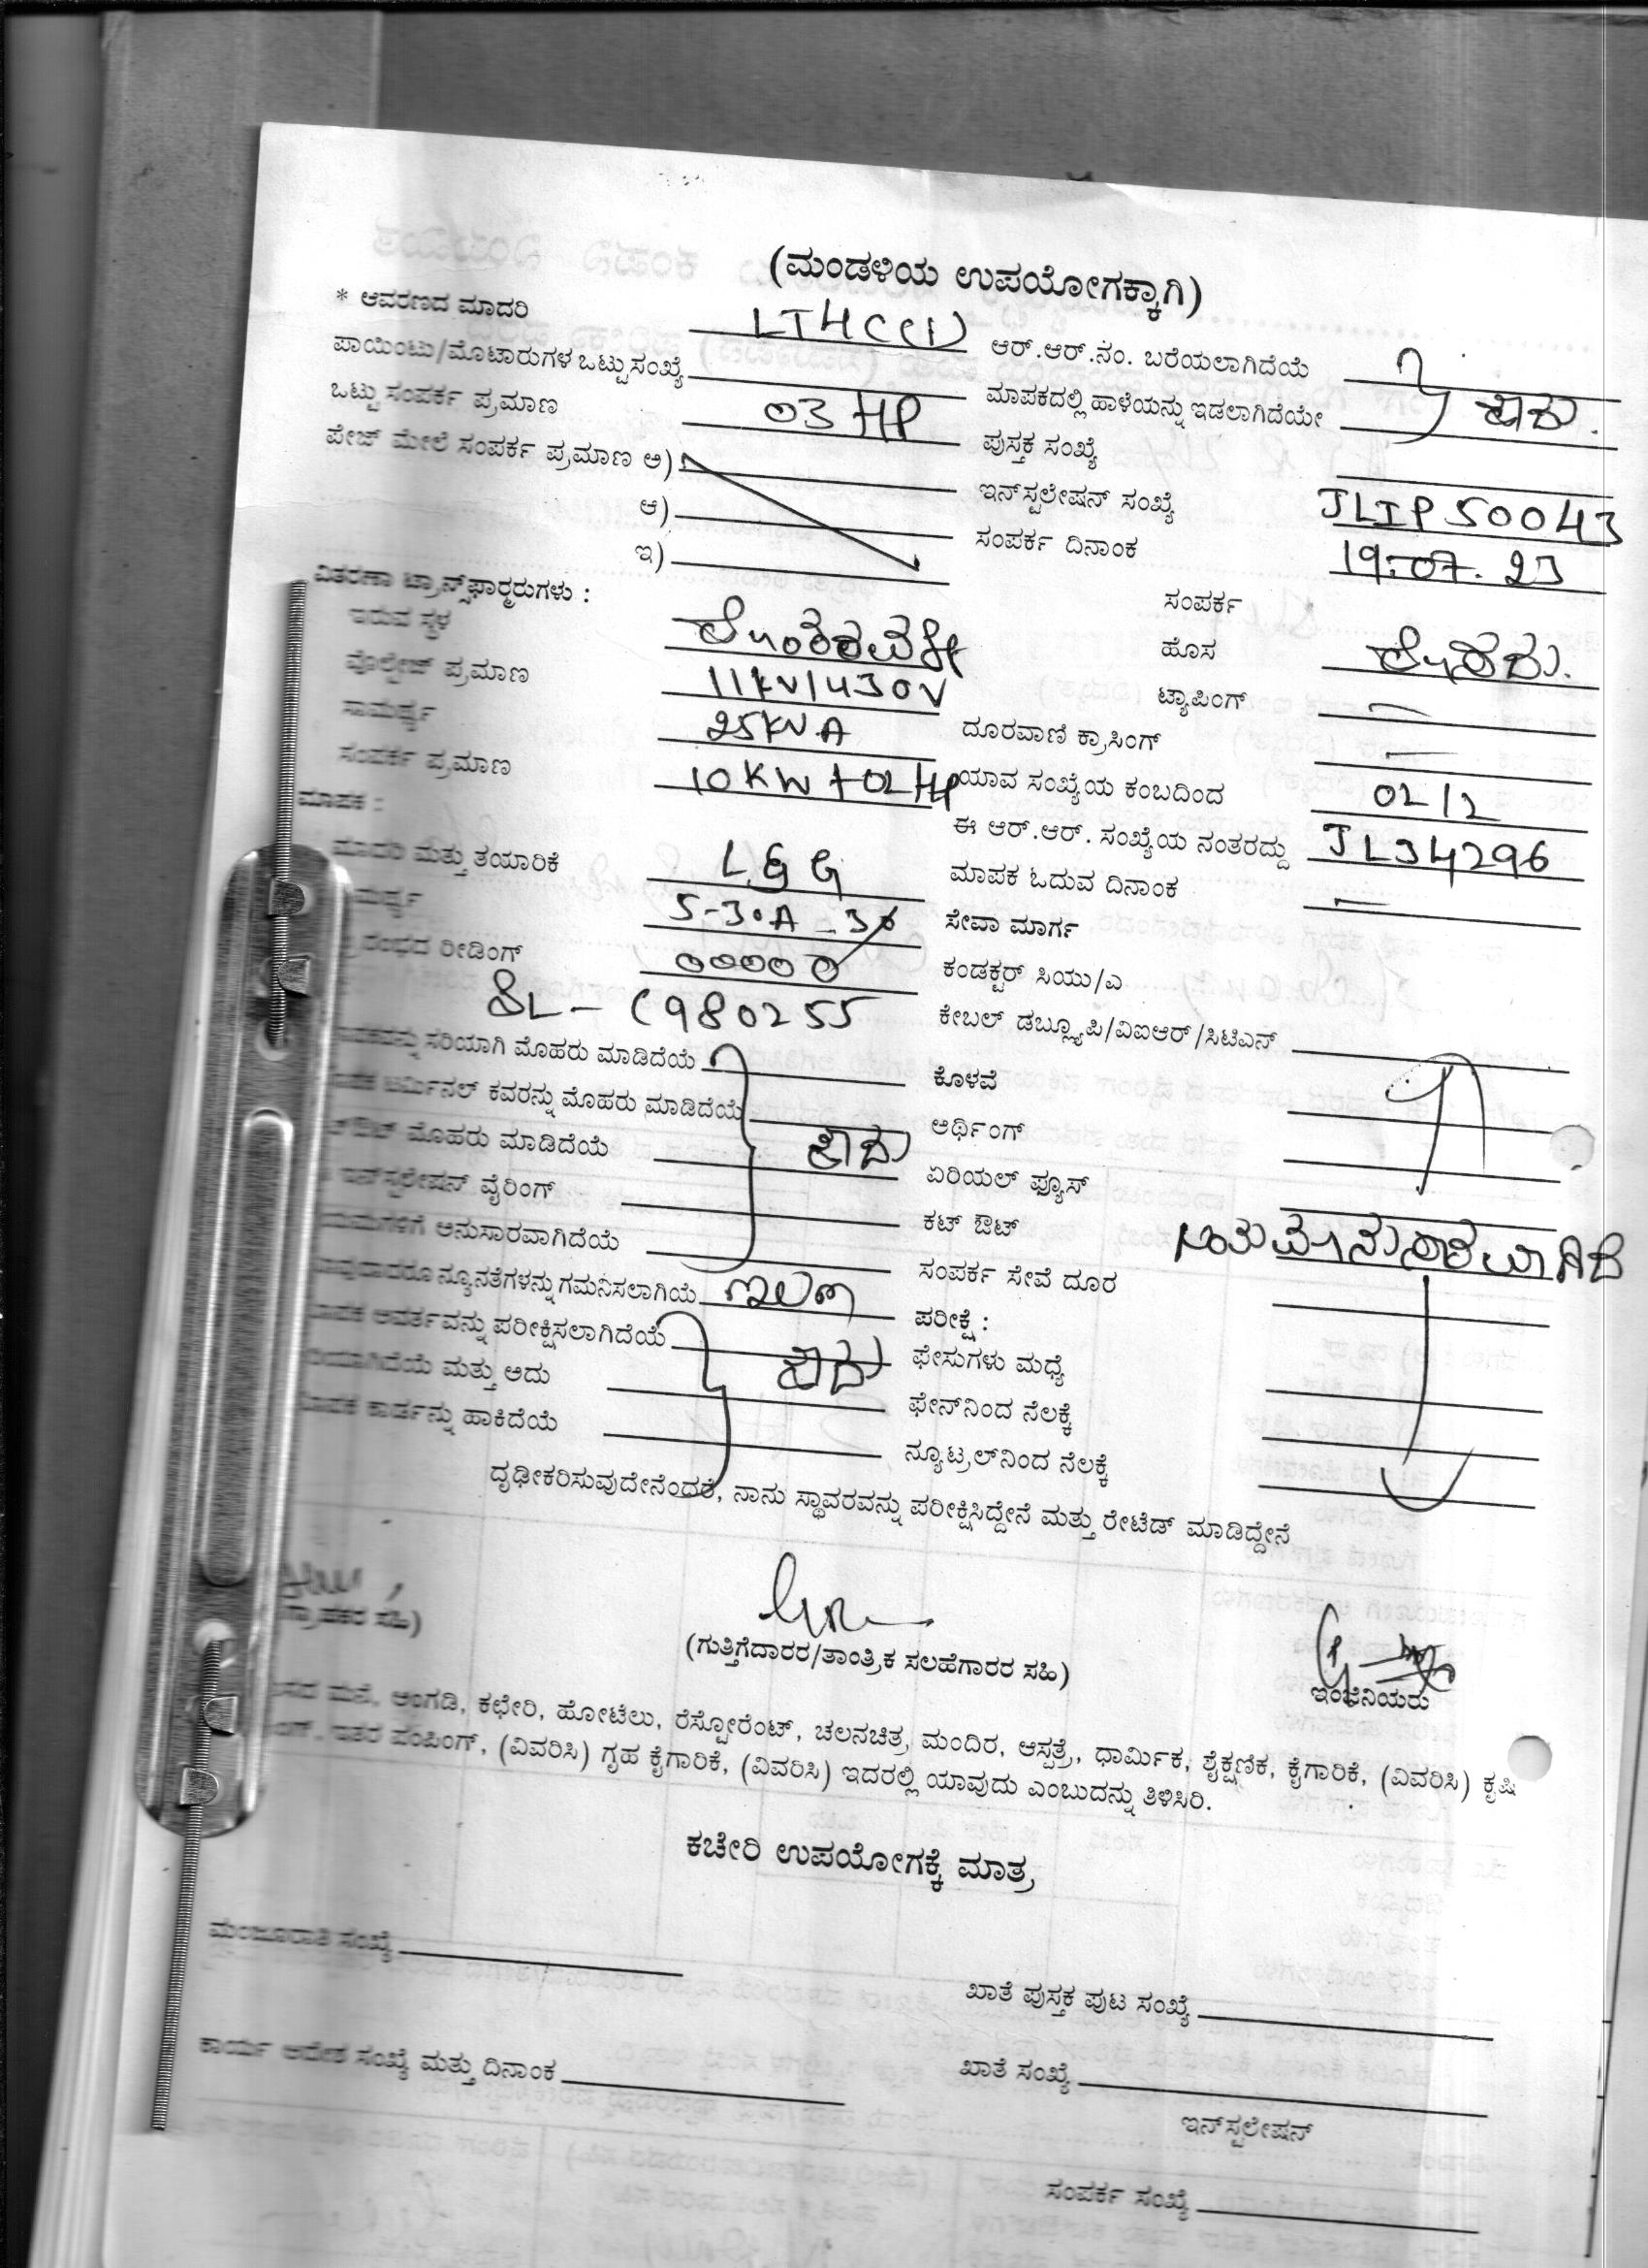 (ಮಂಡಳಿಯ ಉಪಯೋಗಕ್ಕಾಗಿ)
* ಆವರಣದ ಮಾದರಿ LT4C(1) ಆರ್.ಆರ್.ನಂ. ಬರೆಯಲಾಗಿದೆಯೆ
ಪಾಯಿಂಟು/ಮೊಟಾರುಗಳ ಒಟ್ಟು ಸಂಖ್ಯೆ ಮಾಪಕದಲ್ಲಿ ಹಾಳೆಯನ್ನು ಇಡಲಾಗಿದೆಯೇ ಹೌದು.
ಒಟ್ಟು ಸಂಪರ್ಕ ಪ್ರಮಾಣ 03 HP ಪುಸ್ತಕ ಸಂಖ್ಯೆ
ಪೇಜ್ ಮೇಲೆ ಸಂಪರ್ಕ ಪ್ರಮಾಣ ಅ) ಇನ್‌ಸ್ಟಲೇಷನ್ ಸಂಖ್ಯೆ JLIP50043
ಆ) ಸಂಪರ್ಕ ದಿನಾಂಕ 19.07.23
ಇ)
ವಿತರಣಾ ಟ್ರಾನ್ಸ್‌ಫಾರ್ಮರುಗಳು : ಸಂಪರ್ಕ
ಇರುವ ಸ್ಥಳ ಹೊಸ
ವೊಲ್ಟೇಜ್ ಪ್ರಮಾಣ 11KV/430V ಟ್ಯಾಪಿಂಗ್
ಸಾಮರ್ಥ್ಯ 25KVA ದೂರವಾಣಿ ಕ್ರಾಸಿಂಗ್
ಸಂಪರ್ಕ ಪ್ರಮಾಣ 10KW+02HP ಯಾವ ಸಂಖ್ಯೆಯ ಕಂಬದಿಂದ 02/2
ಮಾಪಕ : ಈ ಆರ್.ಆರ್. ಸಂಖ್ಯೆಯ ನಂತರದ್ದು JL34296
ಮಾದರಿ ಮತ್ತು ತಯಾರಿಕೆ L&G ಮಾಪಕ ಓದುವ ದಿನಾಂಕ
ಮರ್ಥ್ಯ 5-30A-3ø ಸೇವಾ ಮಾರ್ಗ
ರಂಭದ ರೀಡಿಂಗ್ 00000 ಕಂಡಕ್ಟರ್ ಸಿಯು/ಎ
SL- C980255 ಕೇಬಲ್ ಡಬ್ಲ್ಯೂಪಿ/ವಿಐಆರ್/ಸಿಟಿಎನ್
ಪಕವನ್ನು ಸರಿಯಾಗಿ ಮೊಹರು ಮಾಡಿದೆಯೆ ಕೊಳವೆ
ಪಕ ಟರ್ಮಿನಲ್ ಕವರನ್ನು ಮೊಹರು ಮಾಡಿದೆಯೆ ಆರ್ಥಿಂಗ್
ಔಟ್ ಮೊಹರು ಮಾಡಿದೆಯೆ ಹೌದು ಏರಿಯಲ್ ಫ್ಯೂಸ್
ಇನ್‌ಸ್ಟಲೇಷನ್ ವೈರಿಂಗ್ ಕಟ್ ಔಟ್
ಯಮಗಳಿಗೆ ಅನುಸಾರವಾಗಿದೆಯೆ ಸಂಪರ್ಕ ಸೇವೆ ದೂರ
ವುದಾದರೂ ನ್ಯೂನತೆಗಳನ್ನು ಗಮನಿಸಲಾಗಿಯೆ ಇಲ್ಲ ಪರೀಕ್ಷೆ :
ಪಕ ಆವರ್ತವನ್ನು ಪರೀಕ್ಷಿಸಲಾಗಿದೆಯೆ ಫೇಸುಗಳು ಮಧ್ಯೆ
ರಿಯಾಗಿದೆಯೆ ಮತ್ತು ಅದು ಹೌದು ಫೇನ್‌ನಿಂದ ನೆಲಕ್ಕೆ
ಪಕ ಕಾರ್ಡನ್ನು ಹಾಕಿದೆಯೆ ನ್ಯೂಟ್ರಲ್‌ನಿಂದ ನೆಲಕ್ಕೆ
ದೃಢೀಕರಿಸುವುದೇನೆಂದರೆ, ನಾನು ಸ್ಥಾವರವನ್ನು ಪರೀಕ್ಷಿಸಿದ್ದೇನೆ ಮತ್ತು ರೇಟೆಡ್ ಮಾಡಿದ್ದೇನೆ
ಗ್ರಾಹಕರ ಸಹಿ) (ಗುತ್ತಿಗೆದಾರರ/ತಾಂತ್ರಿಕ ಸಲಹೆಗಾರರ ಸಹಿ) ಇಂಜಿನಿಯರು
ಸದ ಮನೆ, ಅಂಗಡಿ, ಕಛೇರಿ, ಹೋಟೆಲು, ರೆಸ್ಟೋರೆಂಟ್, ಚಲನಚಿತ್ರ, ಮಂದಿರ, ಆಸ್ಪತ್ರೆ, ಧಾರ್ಮಿಕ, ಶೈಕ್ಷಣಿಕ, ಕೈಗಾರಿಕೆ, (ವಿವರಿಸಿ) ಕೃಷಿ
ಇತರ ಪಂಪಿಂಗ್, (ವಿವರಿಸಿ) ಗೃಹ ಕೈಗಾರಿಕೆ, (ವಿವರಿಸಿ) ಇದರಲ್ಲಿ ಯಾವುದು ಎಂಬುದನ್ನು ತಿಳಿಸಿರಿ.
ಕಚೇರಿ ಉಪಯೋಗಕ್ಕೆ ಮಾತ್ರ
ಮಂಜೂರಾತಿ ಸಂಖ್ಯೆ ಖಾತೆ ಪುಸ್ತಕ ಪುಟ ಸಂಖ್ಯೆ
ಕಾರ್ಯ ಆದೇಶ ಸಂಖ್ಯೆ ಮತ್ತು ದಿನಾಂಕ ಖಾತೆ ಸಂಖ್ಯೆ
ಇನ್‌ಸ್ಟಲೇಷನ್
ಸಂಪರ್ಕ ಸಂಖ್ಯೆ